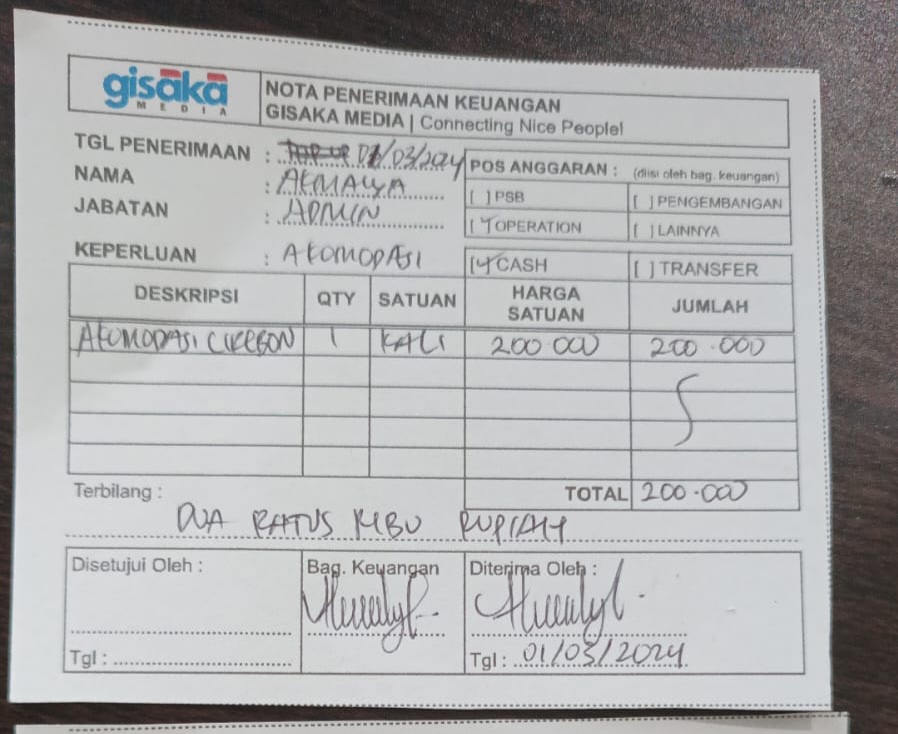 gisaka
MEDIA
NOTA PENERIMAAN KEUANGAN
GISAKA MEDIA | Connecting Nice People!
TGL PENERIMAAN : 01/03/2024
NAMA : AKMALYA
JABATAN : ADMIN
KEPERLUAN : AKOMODASI
POS ANGGARAN : (diisi oleh bag. keuangan)
[ ] PSB [ ] PENGEMBANGAN
[✓] OPERATION [ ] LAINNYA
[✓] CASH [ ] TRANSFER
DESKRIPSI QTY SATUAN HARGA SATUAN JUMLAH
AKOMODASI CIREBON 1 KALI 200.000 200.000
TOTAL 200.000
Terbilang :
DUA RATUS RIBU RUPIAH
Disetujui Oleh : Bag. Keuangan Diterima Oleh :
Tgl : Tgl : 01/03/2024